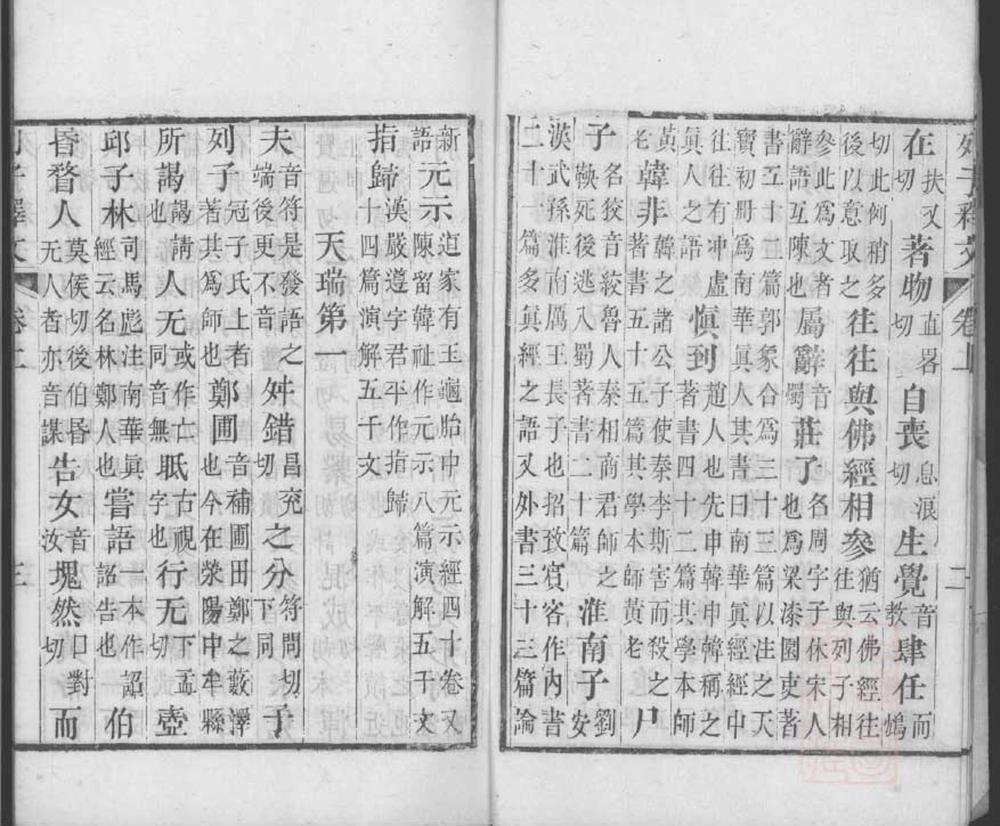 列子釋文 卷上 二
在扶又切著物直畧切自喪息浪切生覺音教肆任而鴆
切此例稍多後以意取之往往與佛經相參猶云佛經往往與列子相
參此爲文者辭語互陳也屬辭音蜀莊子名周字子休宋人也爲梁漆園吏著
書五十二篇郭象合爲三十三篇以注之天寶初冊爲南華眞人其書曰南華眞經中
往往有冲虛眞人之語愼到趙人也先申韓申韓稱之著書四十二篇其學本師
黃老韓非韓之諸公子使秦李斯害而殺之著書五十五篇其學本師黃老尸
子名佼音絞魯人秦相商君師之鞅死後逃入蜀著書二十篇淮南子劉安
漢武孫淮南厲王長子也招致賓客作內書二十一篇多眞經之語又外書三十三篇論
新語元示道家有玉龜胎中元示經四十卷又陳留韓祉作元示八篇演解五千文
指歸漢嚴遵字君平作指歸十四篇演解五千文
天瑞第一
夫音符是發語之端後更不音舛錯昌兖切之分符問切下同子
列子不冠子氏上者著其爲師也鄭圃音補圃田鄭之藪澤也今在滎陽中牟縣
所謁謁請也人无或作亡同音無字也眡古視字也行无下孟切壺
邱子林司馬彪注南華眞經云名林鄭人也嘗語一本作詔詔告也伯
昏瞀人莫侯切後伯昏无人者亦音謀告女音汝塊然口對切而
列子釋文 卷上 三